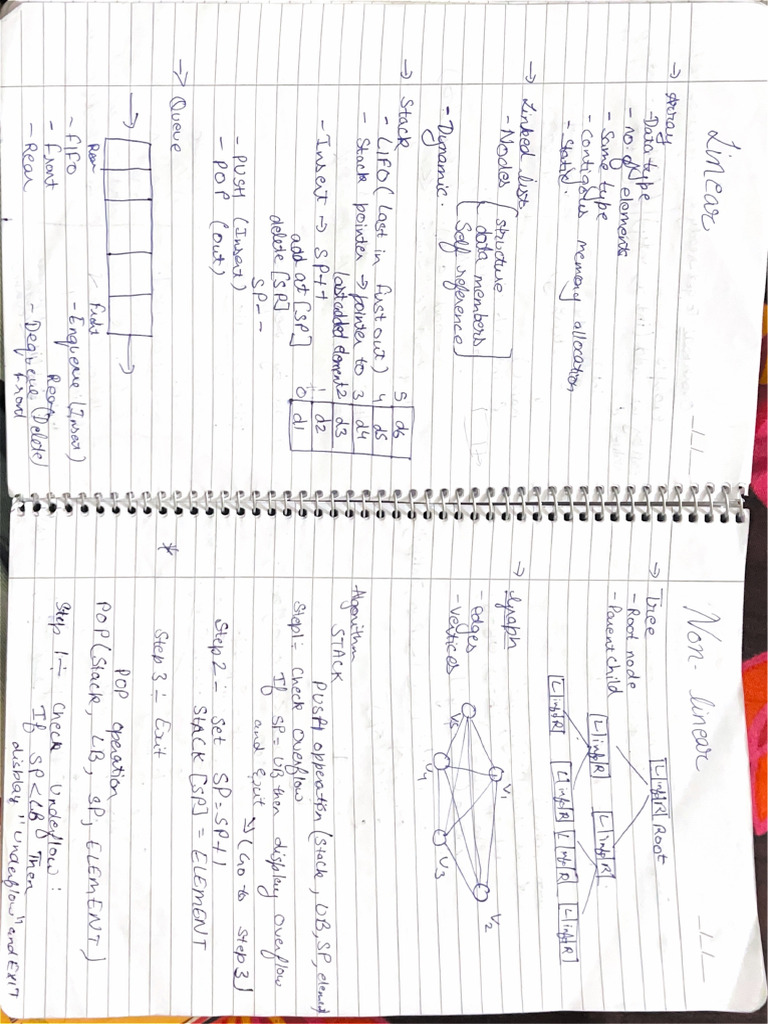 Linear
→ Array
- Data type
- no. of elements
- Same type
- Contigous memory allocation
- Static
→ Linked list
- Nodes [structure
data members
Self reference]
- Dynamic.
→ Stack
- LIFO (Last in first out)
- Stack pointer → pointer to
last added element
- Insert → SP++
add at [SP]
delete [SP]
SP--
- PUSH (Insert)
- POP (out)
5 d6
4 d5
3 d4
2 d3
1 d2
0 d1
→ Queue
Rear
Front
- FIFO
- Front
- Rear
- Enqueue (Insert)
Rear
- Dequeue (Delete)
Front
Non-linear
→ Tree
- Root node
- Parent child
L info R Root
L info R
L info R
L info R
L info R
L info R
L info R
→ Graph
- edges
- vertices
V1
V2
V3
V4
V5
Algorithm
STACK
PUSH opperation (Stack, UB, SP, element
Step1 = Check Overflow
If SP = UB then display Overflow
and Exit → (Go to step 3)
Step 2 :- Set SP = SP+1
STACK [SP] = ELEMENT
Step 3 :- Exit
*
POP operation
POP (Stack, LB, SP, ELEMENT)
Step 1 :- Check Underflow :
If SP < LB Then
display "Underflow" and EXIT